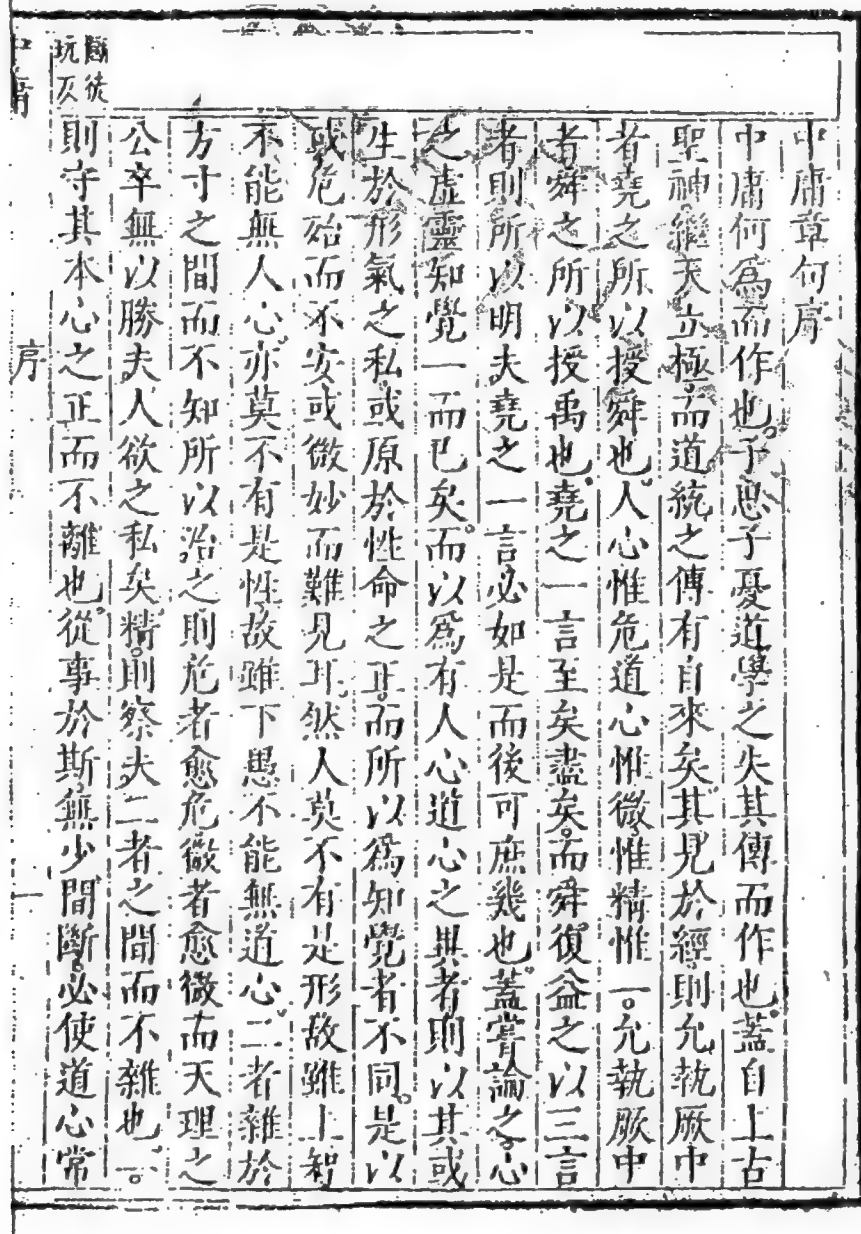 中庸章句序
中庸何為而作也。子思子憂道學之失其傳而作也。蓋自上古
聖神繼天立極。而道統之傳有自來矣。其見於經。則允執厥中
者堯之所以授舜也。人心惟危道心惟微。惟精惟一。允執厥中
者舜之所以授禹也。堯之一言至矣盡矣。而舜復益之以三言
者則所以明夫堯之一言必如是而後可庶幾也。蓋嘗論之。心
之虛靈知覺一而已矣。而以爲有人心道心之異者則以其或
生於形氣之私。或原於性命之正。而所以爲知覺者不同。是以
或危殆而不安或微妙而難見耳。然人莫不有是形故雖上智
不能無人心。亦莫不有是性。故雖下愚不能無道心。二者雜於
方寸之間而不知所以治之則危者愈危微者愈微而天理之
公卒無以勝夫人欲之私矣。精。則察夫二者之間而不雜也。一。
則守其本心之正而不離也。從事於斯。無少間斷。必使道心常
斷徒
玩反
中庸
序
一